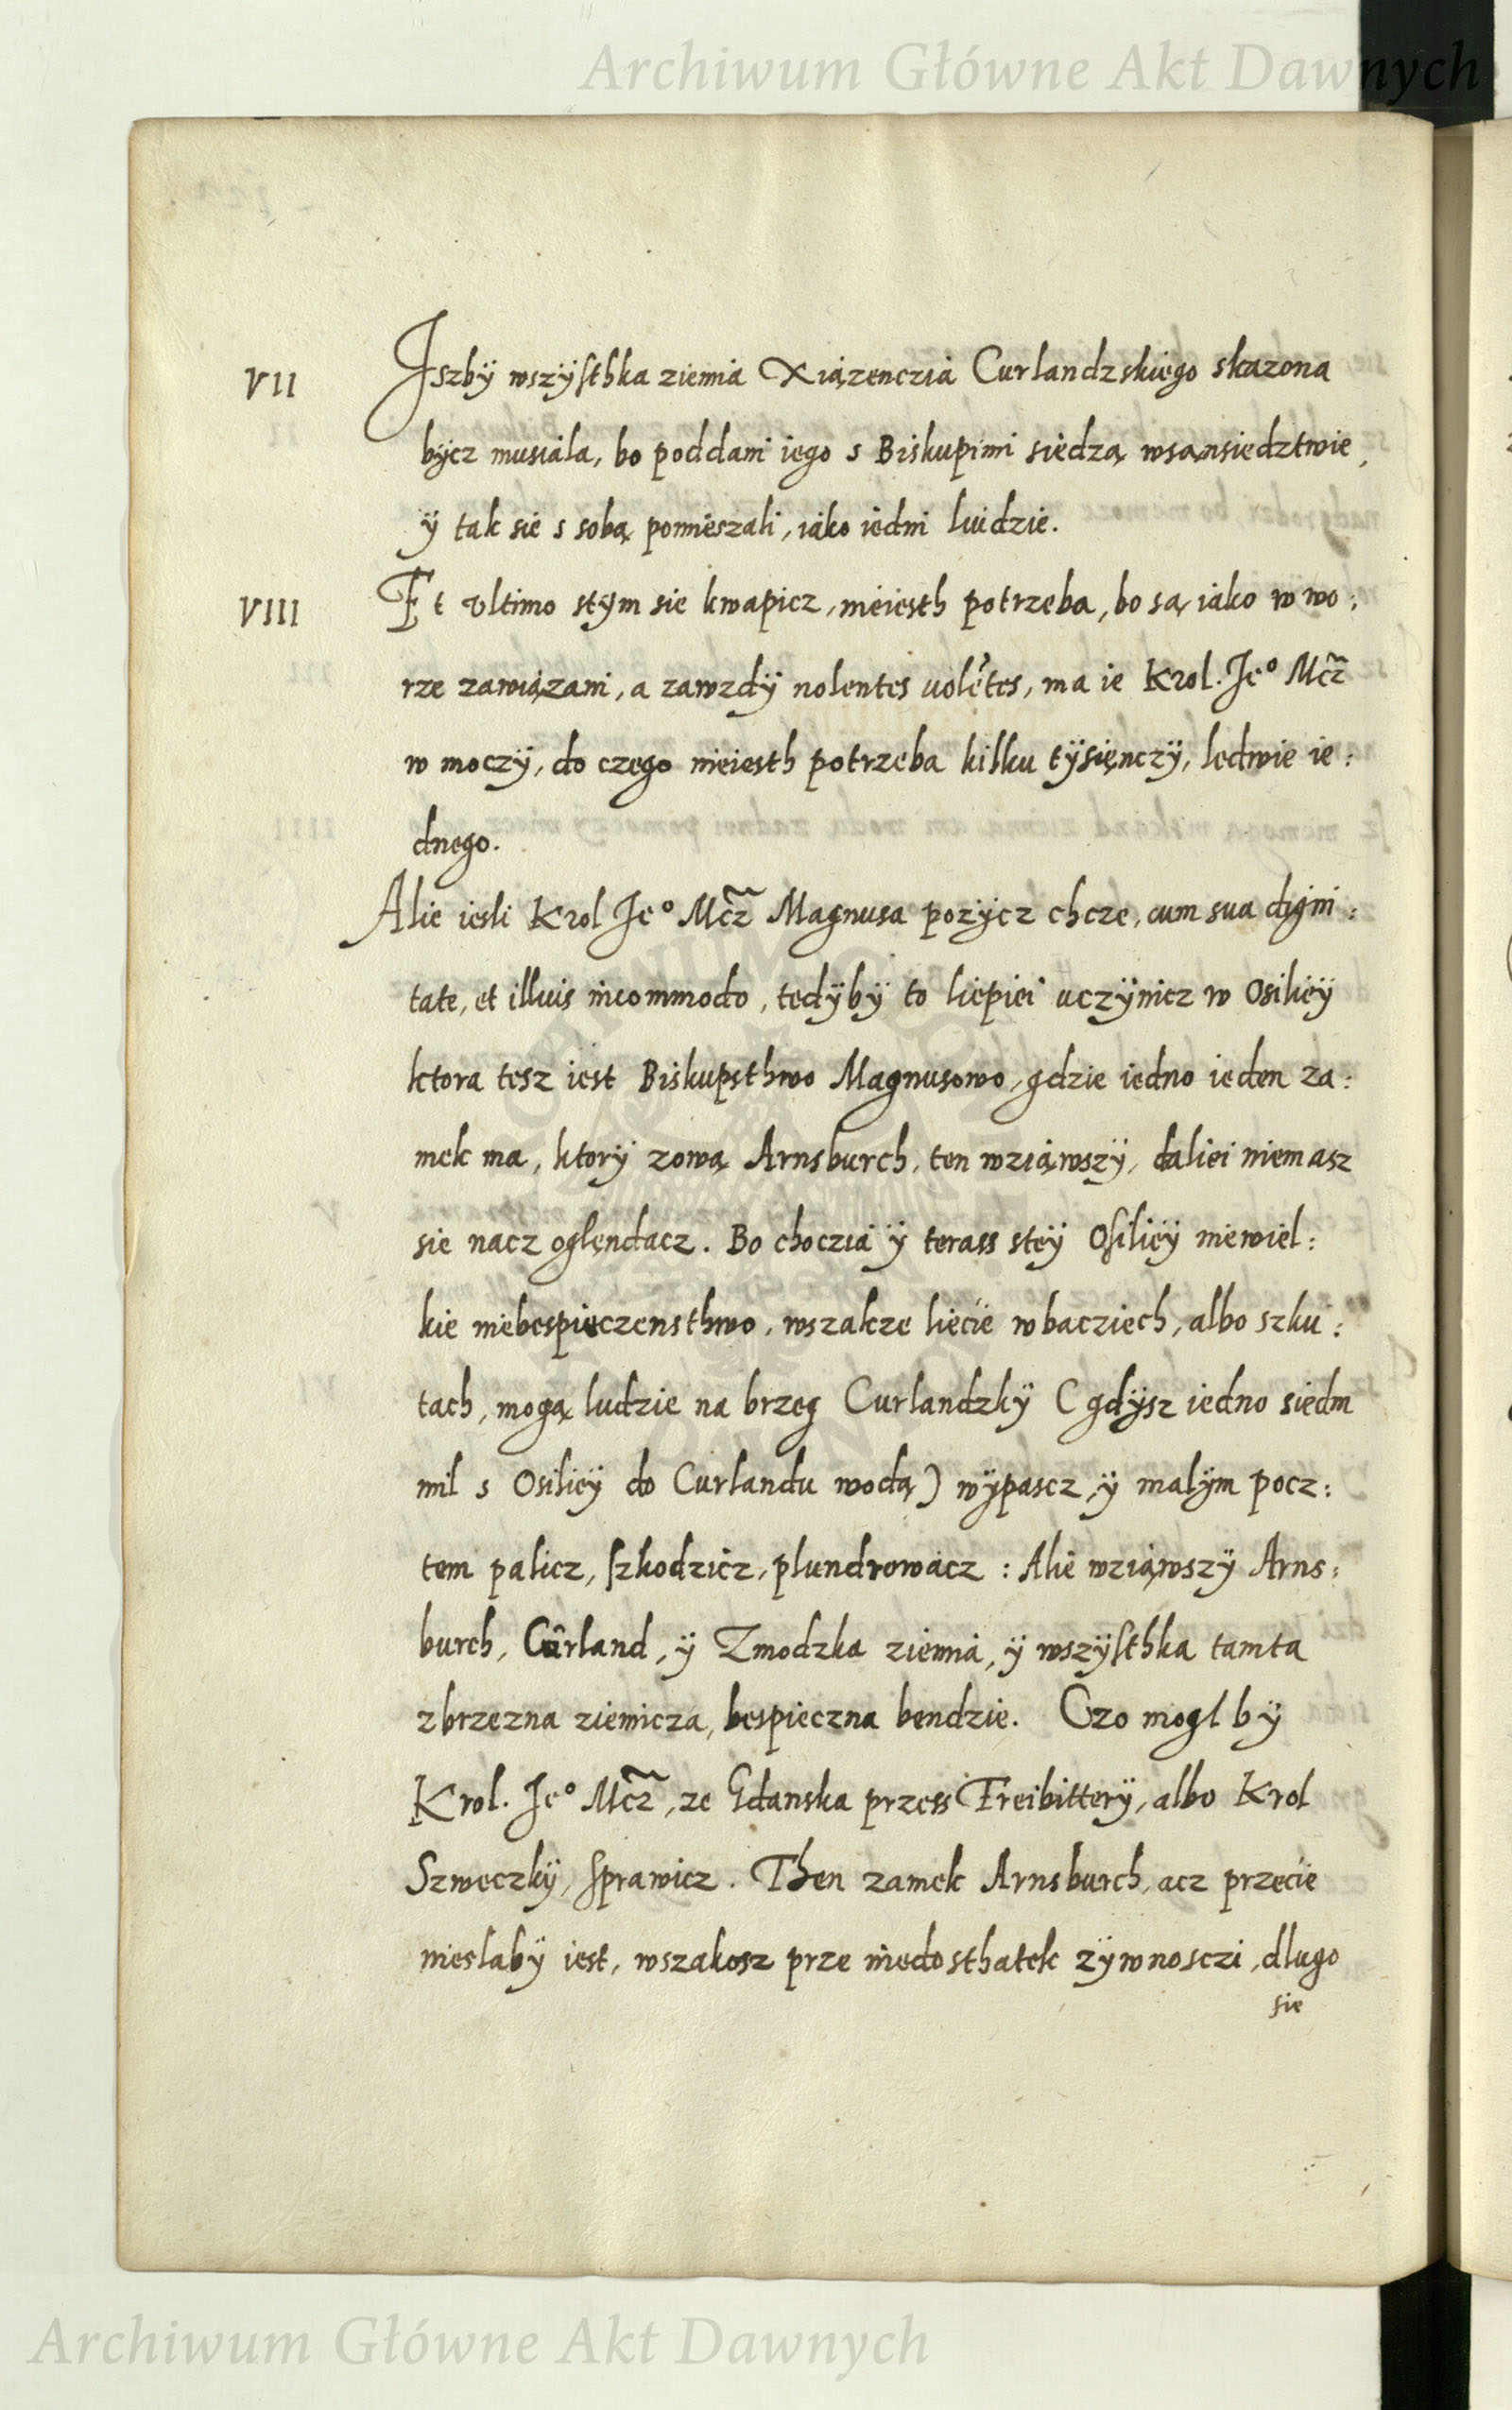 Archiwum Główne Akt Dawnych
VII Iszbÿ wszÿsthka ziemia Xiązenczia Curlandzskiego skazona
bÿcz musiala, bo poddani iego s Biskupimi siedzą wsąnsiedztwie,
ÿ tak sie s sobą pomieszali, iako iedni luidzie.
VIII Et vltimo stÿm sie kwapicz, nieiesth potrzeba, bo są iako w wo:
rze zawiązani, a zawzdÿ nolentes uolẽtes, ma ie Krol. Je° Mcz̃
w moczÿ, do czego nieiesth potrzeba kilku tÿsięnczÿ, ledwie ie:
dnego.
Alie iesli Krol Je° Mcz̃ Magnusa pozÿcz chcze, cum sua digni:
tate, et illius incommodo, tedÿbÿ to liepiei uczÿnicz w Osilieÿ
ktora tesz iest Biskupsthwo Magnusowo, gdzie iedno ieden za:
mek ma, ktorÿ zową Arnsburch, ten wziąwszÿ, daliei niemasz
sie nacz oglęndacz. Bo choczia ÿ terass steÿ Osilieÿ niewiel:
kie niebespieczensthwo, wszakze liecie w bacziech, albo szku:
tach, mogą ludzie na brzeg Curlandzkÿ (gdÿsz iedno siedm
mil s Osilieÿ do Curlandu wodą) wÿpascz, ÿ malÿm pocz:
tem palicz, szkodzicz, plundrowacz: Alie wziąwszÿ Arns:
burch, Curland, ÿ Zmodzka ziemia, ÿ wszÿsthka tamta
zbrzezna ziemicza, bespieczna bendzie. Czo mogl bÿ
Krol. Je° Mcz̃, ze Gdanska przess Freibitterÿ, albo Krol
Szweczkÿ, sprawicz. Then zamek Arnsburch, acz przecie
nieslabÿ iest, wszakosz prze niedosthatek zÿwnosczi, dlugo
sie
Archiwum Główne Akt Dawnych